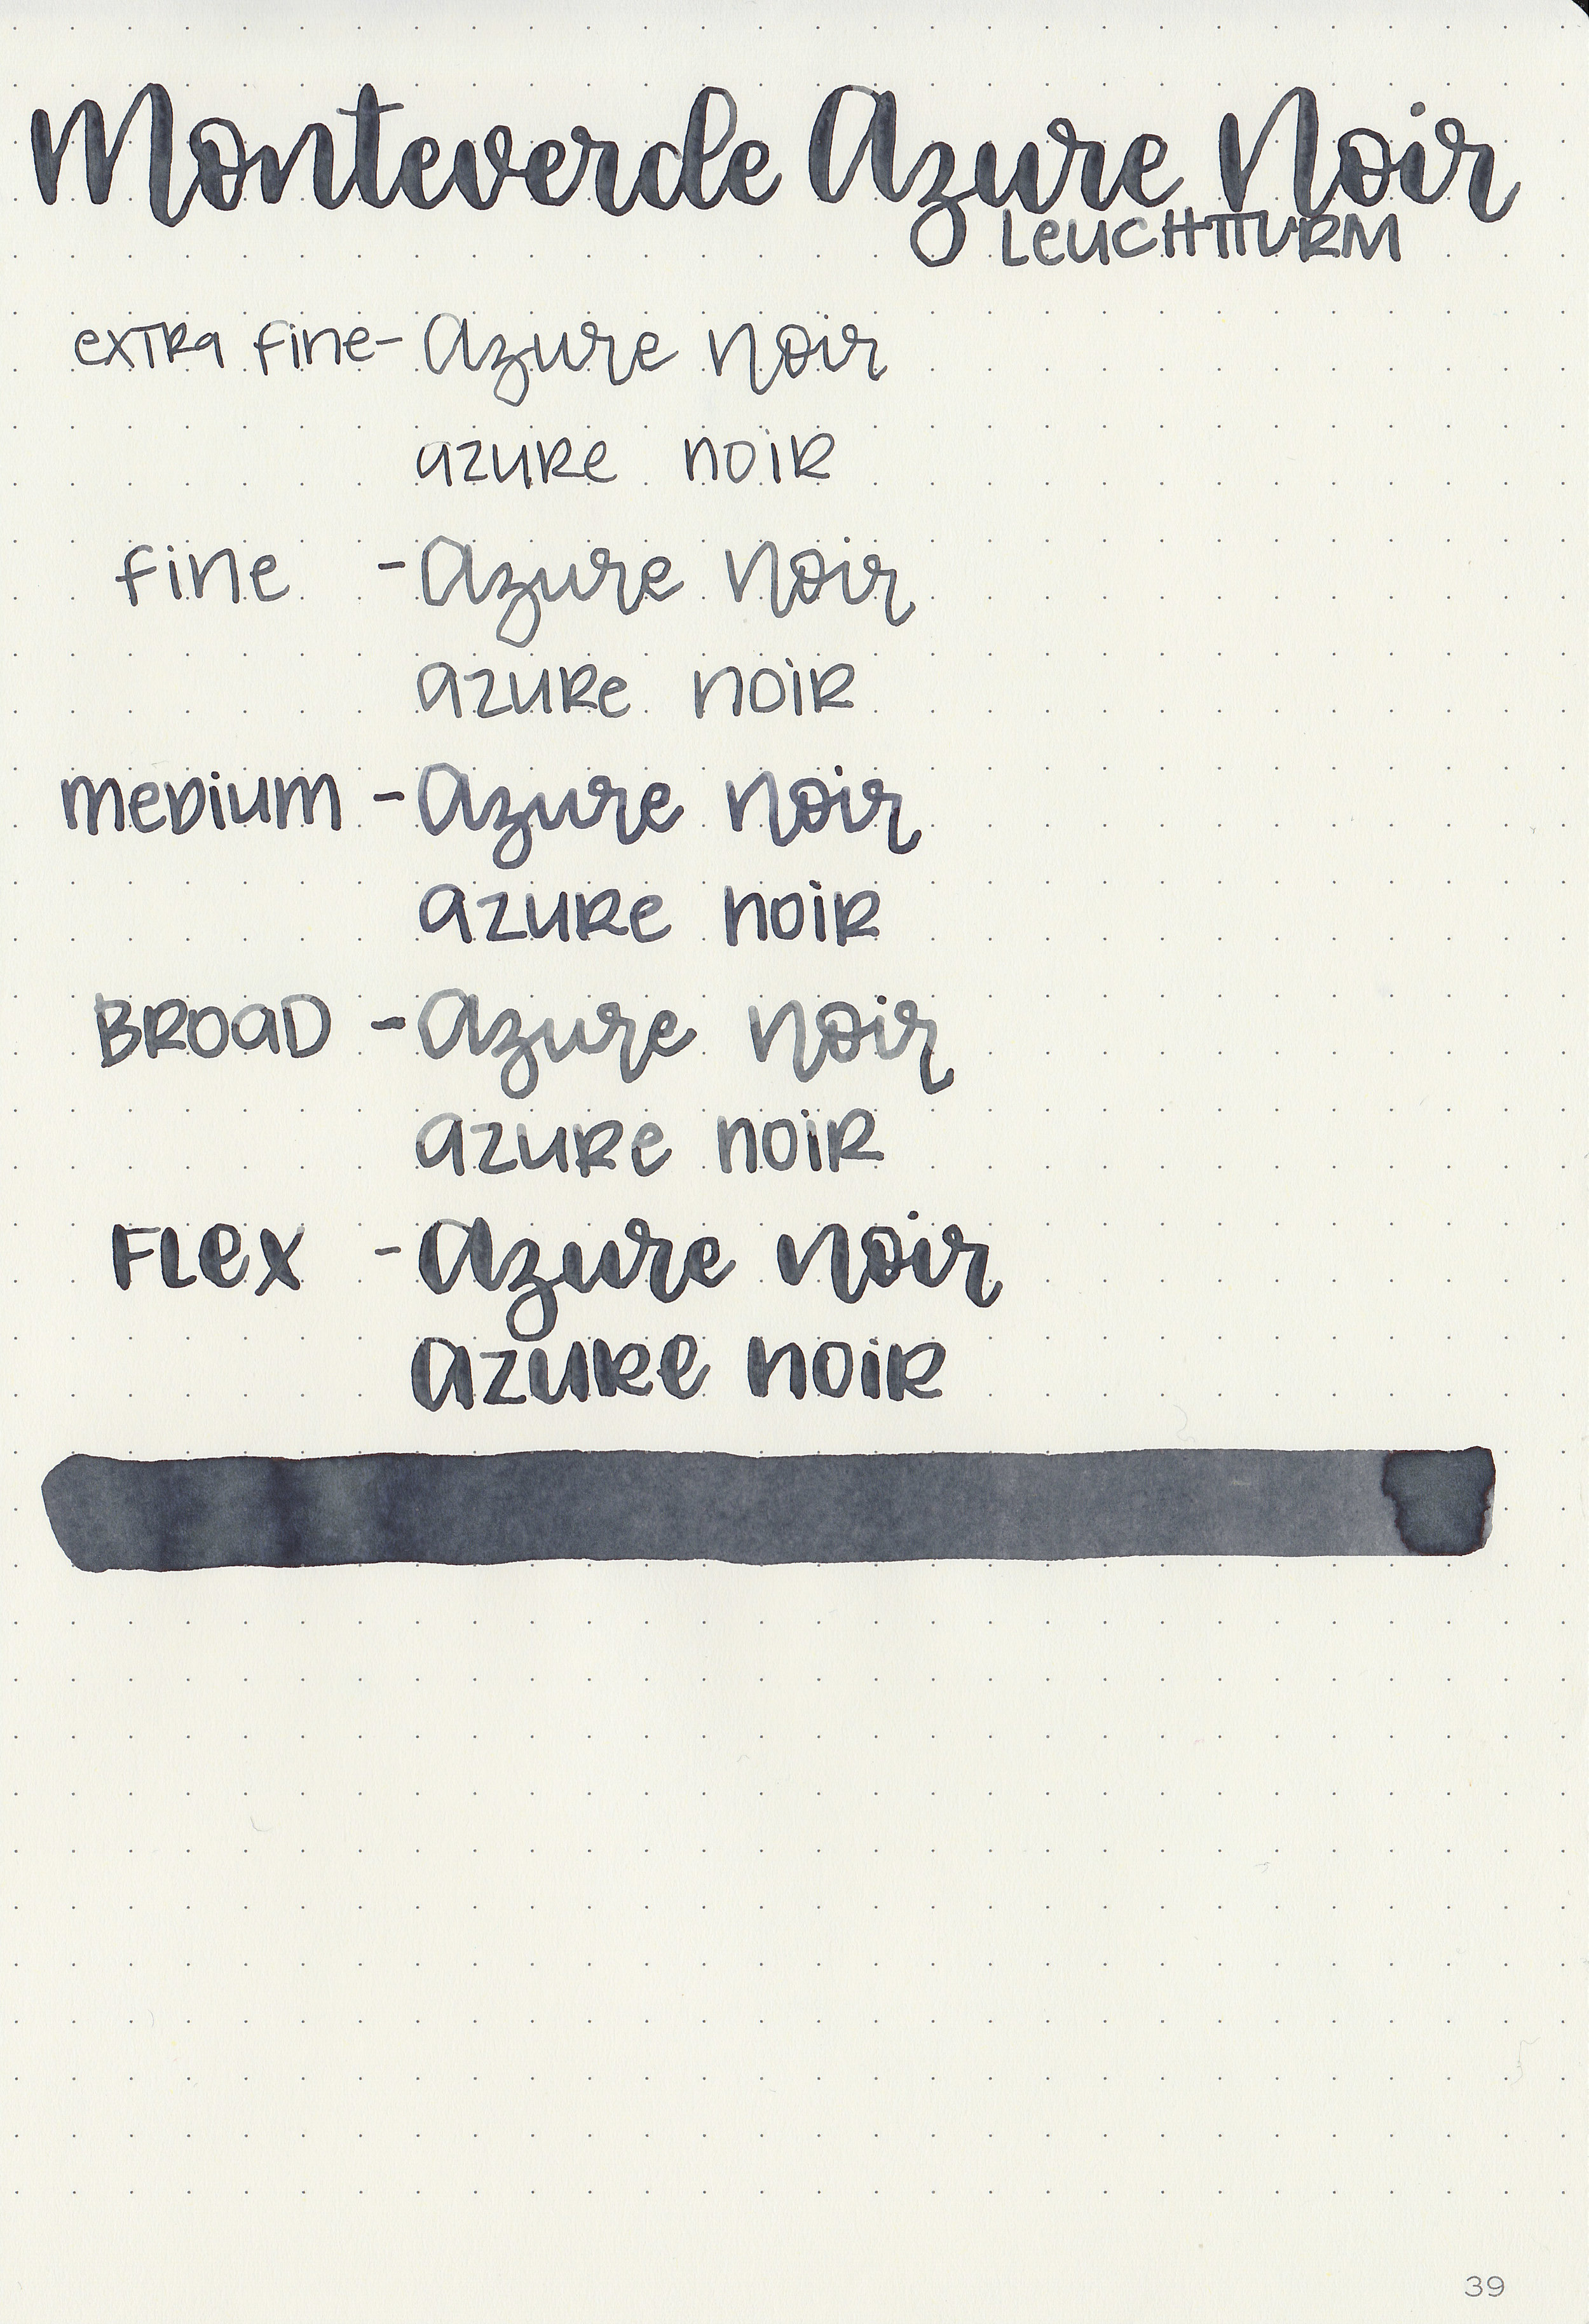 Monteverde Azure Noir
LEUCHTTURM
extra fine - Azure Noir
azure noir
fine - Azure Noir
azure noir
medium - Azure Noir
azure noir
BROAD - Azure Noir
azure noir
FLEX - Azure Noir
azure noir
39